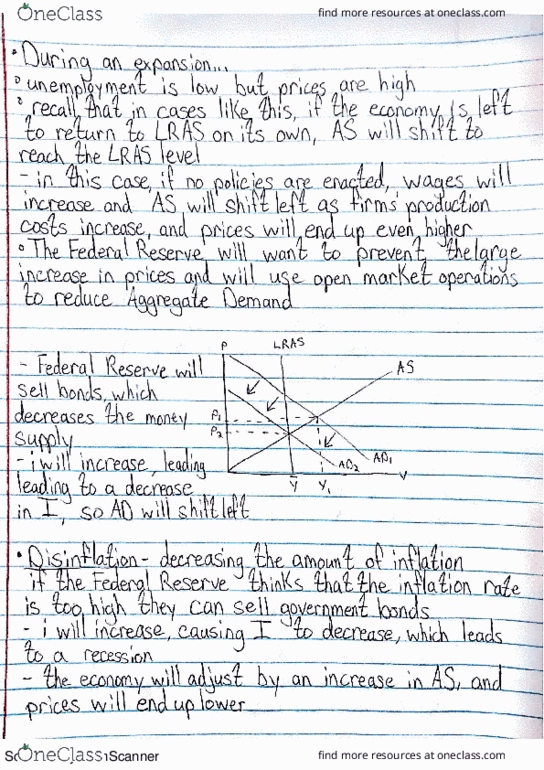 OneClass
find more resources at oneclass.com
• During an expansion...
° unemployment is low but prices are high
° recall that in cases like this, if the economy is left
to return to LRAS on its own, AS will shift to
reach the LRAS level
- in this case, if no policies are enacted, wages will
increase and AS will shift left as firms' production
costs increase, and prices will end up even higher
° The Federal Reserve, will want to prevent the large
increase in prices and will use open market operations
to reduce Aggregate Demand
- Federal Reserve will
sell bonds, which
decreases the money
supply
- i will increase, leading
leading to a decrease
in I, so AD will shift left
P
LRAS
AS
P₁
P₂
AD₁
AD₂
Y
Y₁
Ȳ
• Disinflation - decreasing the amount of inflation
if the Federal Reserve thinks that the inflation rate
is too high they can sell government bonds
- i will increase, causing I to decrease, which leads
to a recession
- the economy will adjust by an increase in AS, and
prices will end up lower
OneClass
Scanner
find more resources at oneclass.com